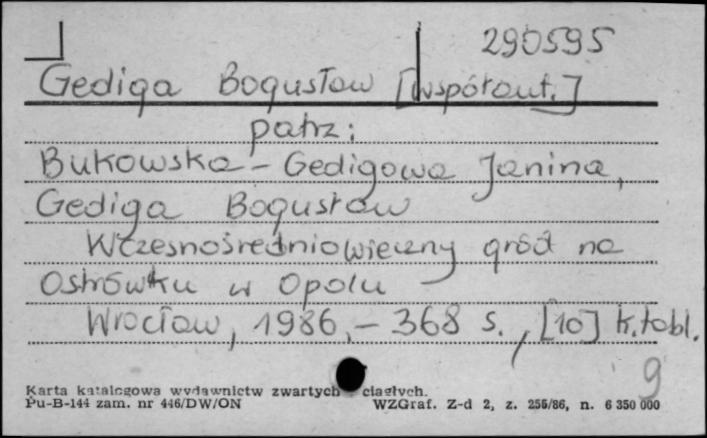 290595
Gediga Bogusław [współaut.]
patrz:
Bukowska-Gedigowa Janina,
Gediga Bogusław
Wczesnośredniowieczny gród na
Ostrówku w Opolu
Wrocław, 1986,- 368 s., [10] k.tabl.
9
Karta katalogowa wydawnictw zwartych ciągłych.
Pu-B-144 zam. nr 446/DW/ON WZGraf. Z-d 2, z. 256/86, n. 6 350 000